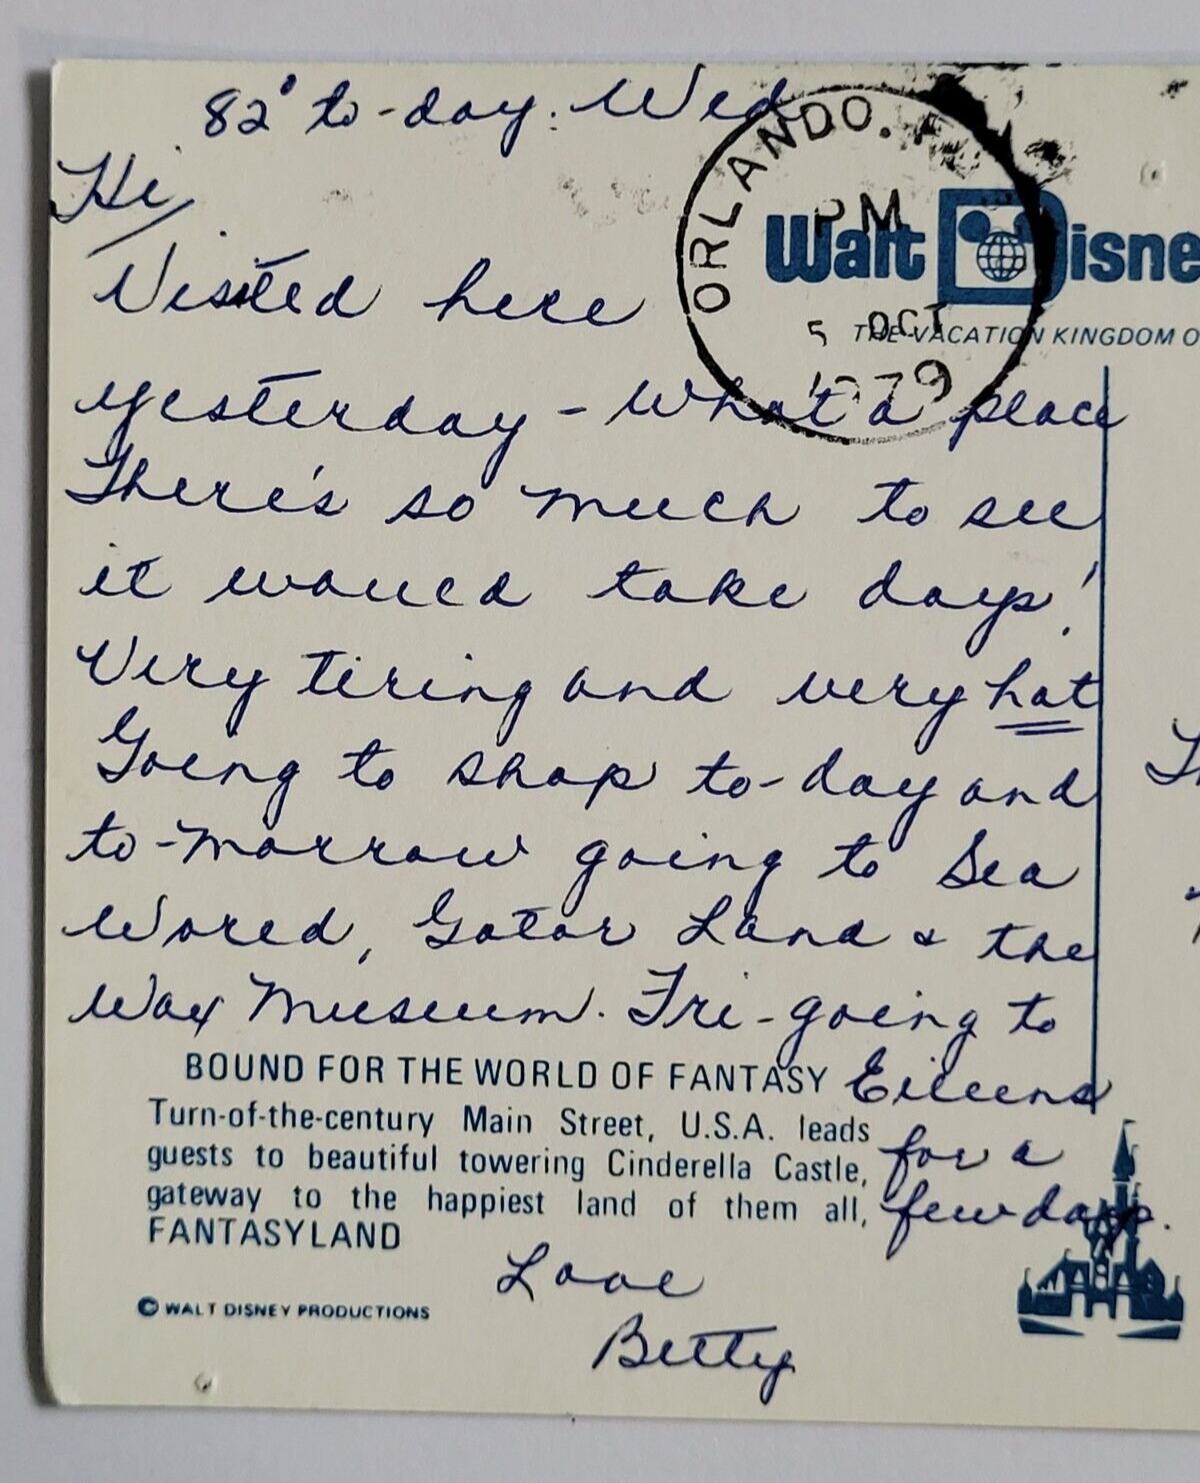 82° to-day. Wed
Hi,
Visited here
yesterday - what a place
There's so much to see
it would take days!
Very tiring and very hot
Going to shop to-day and
to-morrow going to Sea
World, Gator Land & the
Wax Museum. Fri-going to
Eileens
for a
few days.
Love
Betty
ORLANDO.
PM
5 OCT
1979
Walt Disne
THE VACATION KINGDOM O
BOUND FOR THE WORLD OF FANTASY
Turn-of-the-century Main Street, U.S.A. leads
guests to beautiful towering Cinderella Castle,
gateway to the happiest land of them all,
FANTASYLAND
© WALT DISNEY PRODUCTIONS